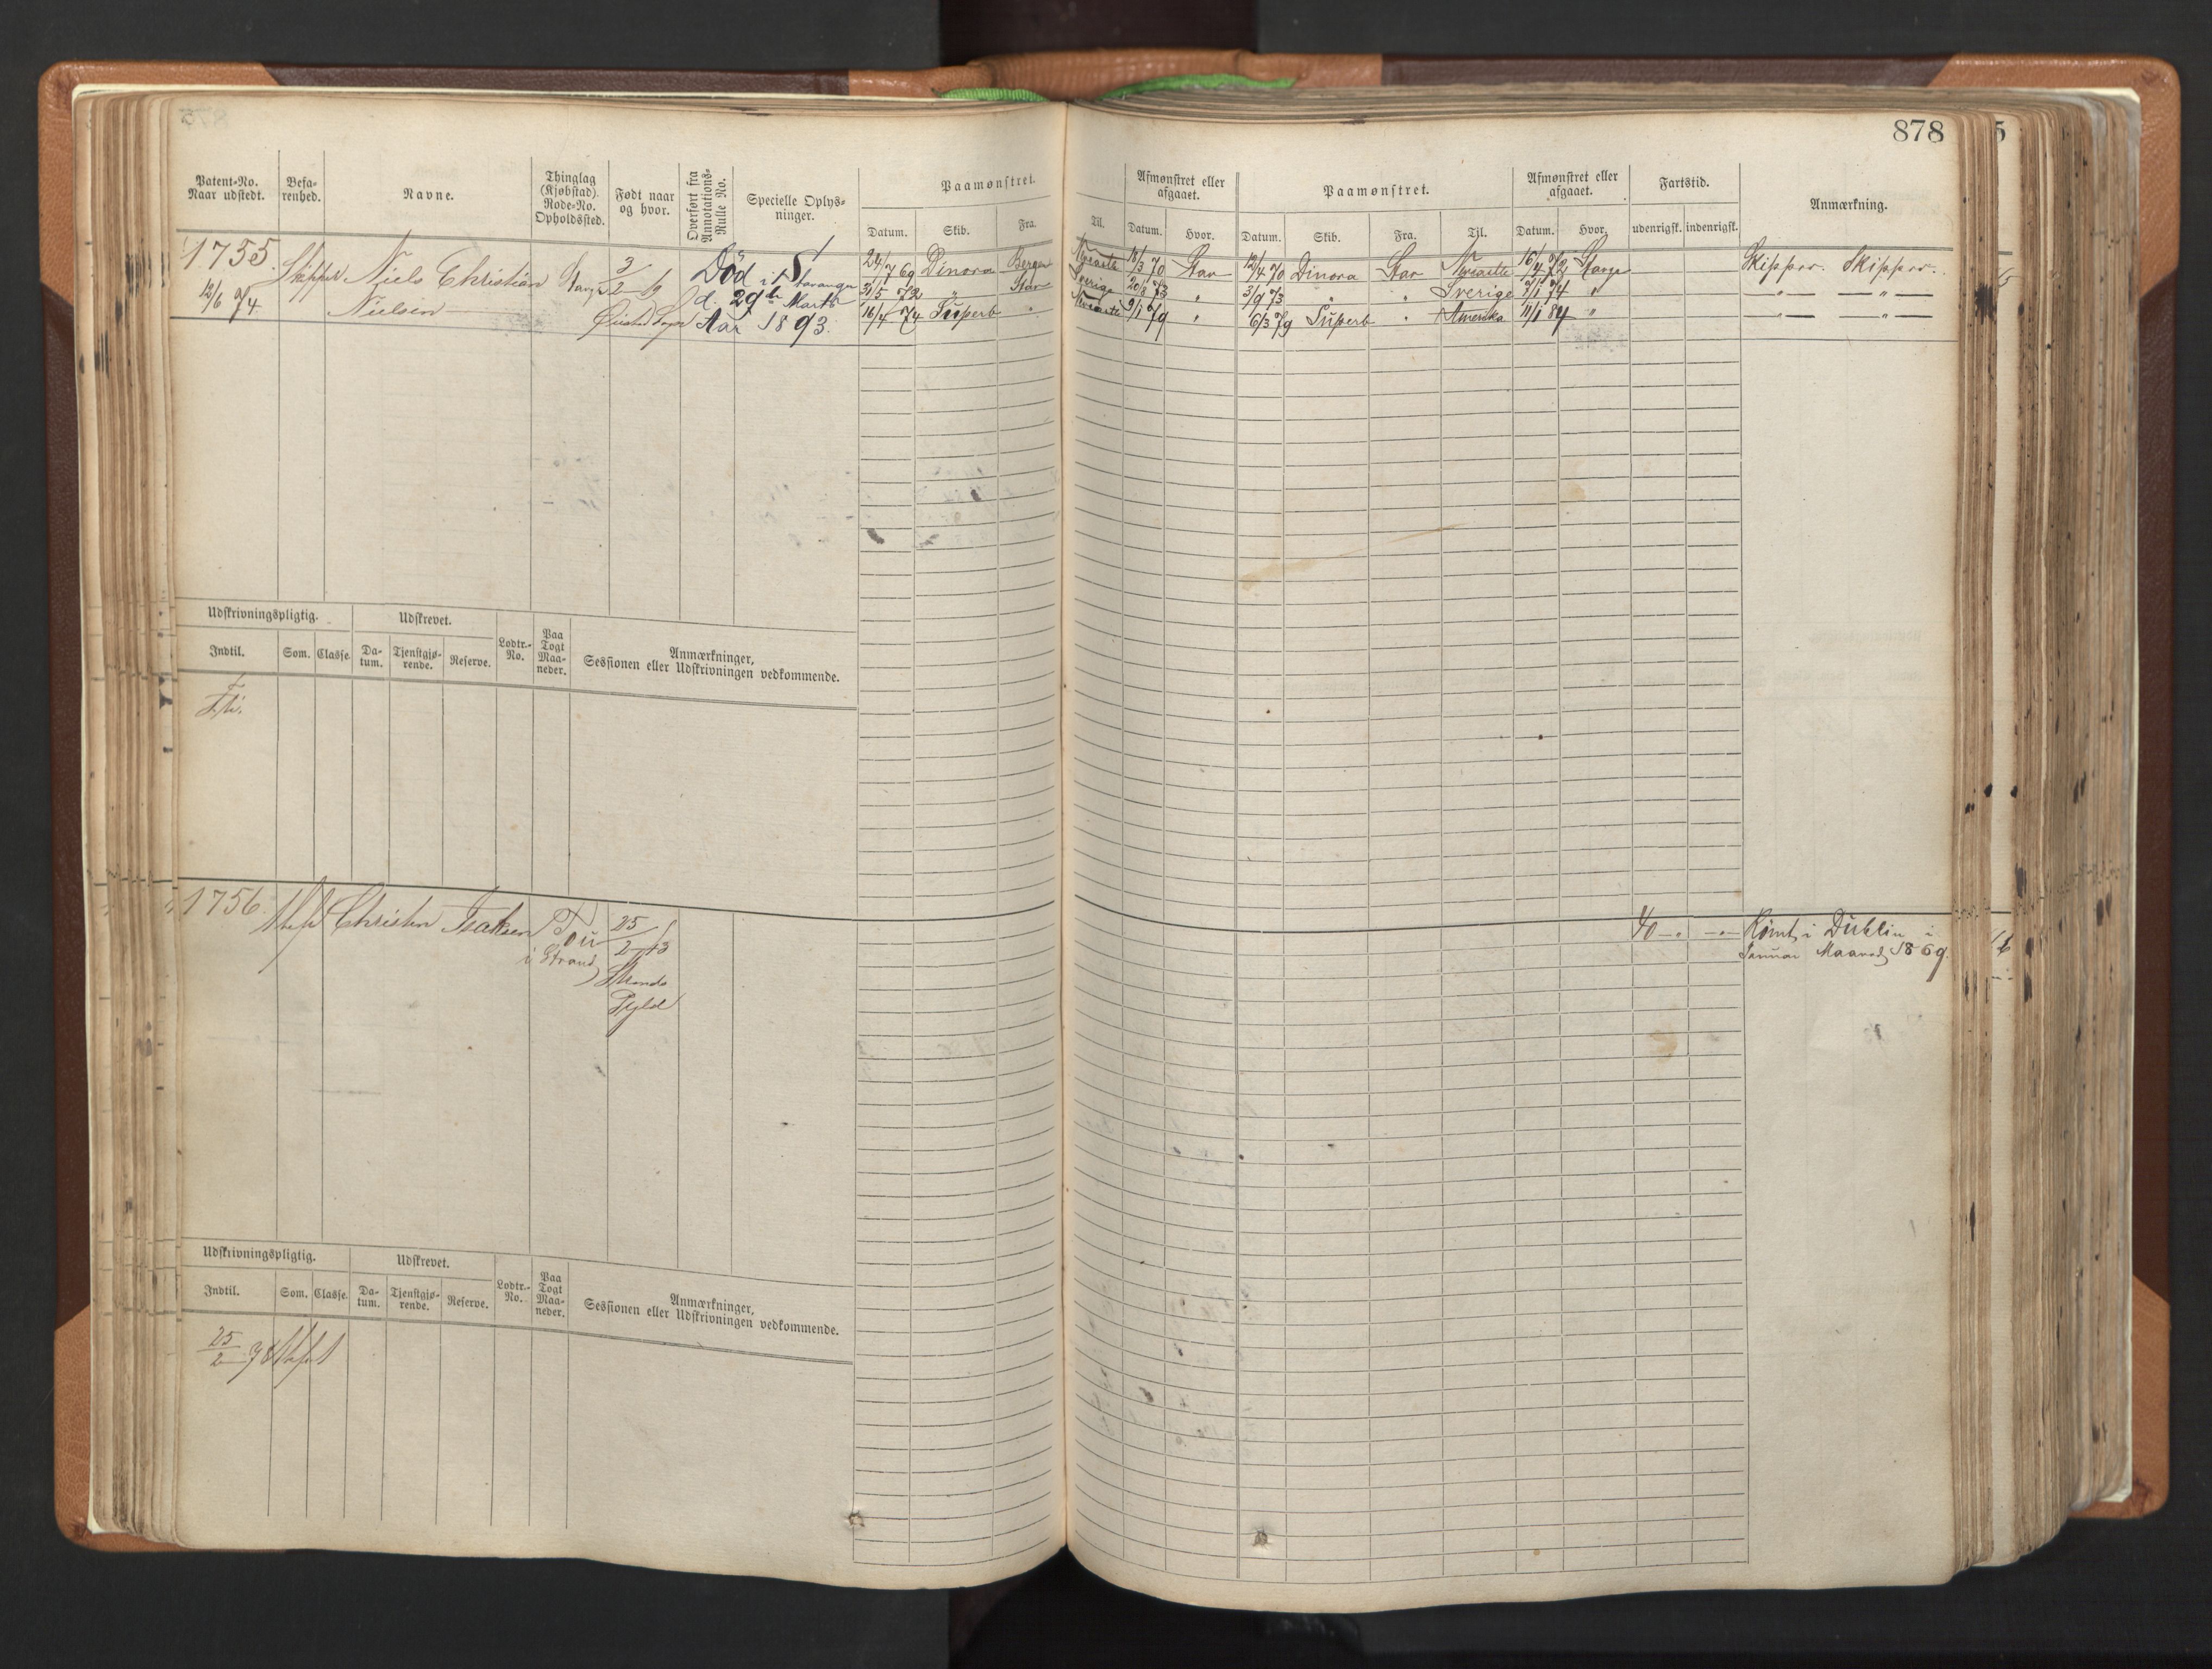 878
Patent-No. Naar udstedt. Befarenhed. Navne. Thinglag (Kjøbstad). Rode-No. Opholdssted. Født naar og hvor. Overført fra Annotations-Rulle No. Specielle Oplysninger. Paamønstret. Afmønstret eller afgaaet. Paamønstret. Afmønstret eller afgaaet. Fartstid. Anmærkning.
Datum. Skib. Fra. Til. Datum. Hvor. Datum. Skib. Fra. Til. Datum. Hvor. udenrigsk. indenrigsk.
1755. Skipper Niels Christian Død i Stavanger 24/7 69 Dinora Bergen 18/3 70 Stav 12/4 70 Dinora Stav Newcastle 16/4 72 Skipper. Skipper.
12/6 74 Nielsen d. 29de Marts 31/5 72 " Stav Sverige 20/3 73 " 3/9 73 " " Sverige 7/1 74 " —"— —"—
Aar 1893. 16/4 74 Superb " 9/1 79 " 6/3 79 Superb " Amerika 11/1 84 " —"— —"—
Udskrivningspligtig. Udskrevet. Lodtr.-No. Paa Togt Maaneder. Anmærkninger, Sessionen eller Udskrivningen vedkommende.
Indtil. Som. Classe. Datum. Tjenstgjørende. Reserve.
1756. Christen Isaksen Tou 25/2 43 Rømt i Dublin i
i Strand Strands Januar Maaned 1869.
Udskrivningspligtig. Udskrevet. Lodtr.-No. Paa Togt Maaneder. Anmærkninger, Sessionen eller Udskrivningen vedkommende.
Indtil. Som. Classe. Datum. Tjenstgjørende. Reserve.
25/2 78